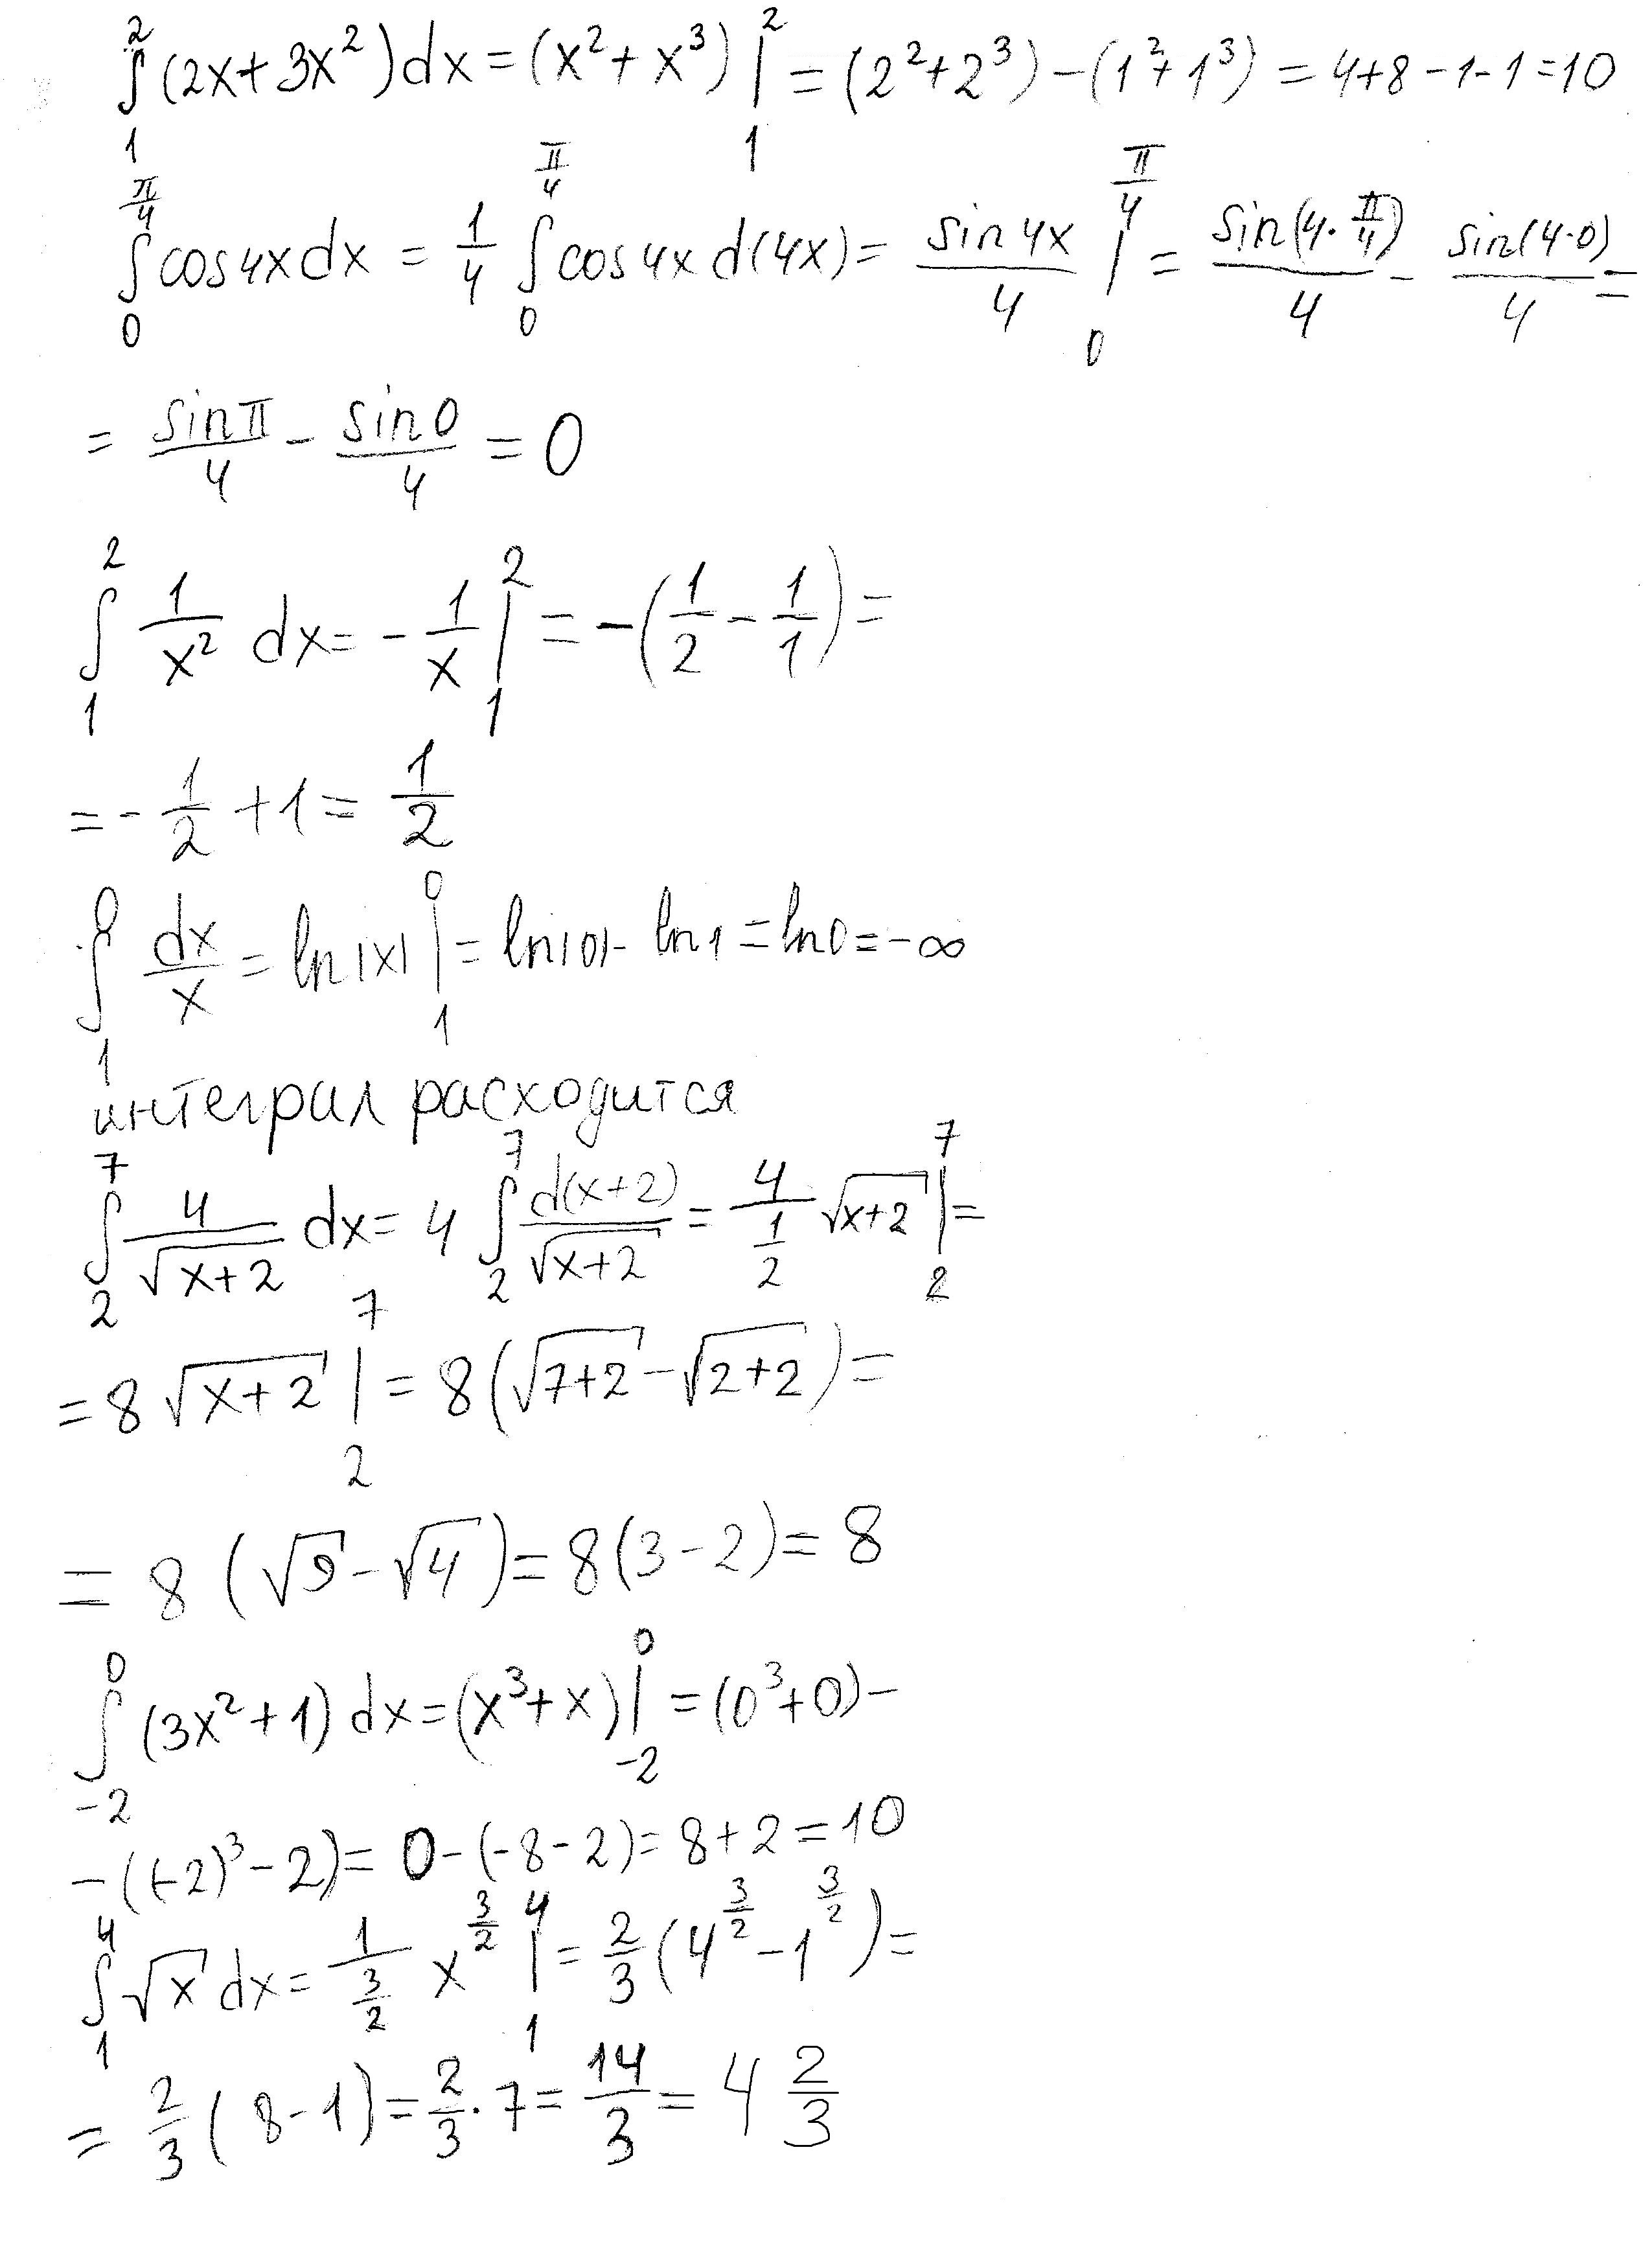 ∫₁² (2x+3x²)dx = (x²+x³)|₁² = (2²+2³)-(1²+1³) = 4+8-1-1=10
∫₀^(π/4) cos4xdx = 1/4 ∫₀^(π/4) cos4x d(4x)= sin4x/4 |₀^(π/4) = sin(4·π/4)/4 - sin(4·0)/4 =
= sinπ/4 - sin0/4 = 0
∫₁² 1/x² dx = -1/x |₁² = -(1/2 - 1/1) =
= -1/2 +1 = 1/2
∫₁⁰ dx/x = ln|x| |₁⁰ = ln|0|- ln1 = ln0 = -∞
интеграл расходится
∫₂⁷ 4/√(x+2) dx = 4 ∫₂⁷ d(x+2)/√(x+2) = 4/(1/2) √(x+2) |₂⁷ =
= 8 √(x+2) |₂⁷ = 8(√(7+2) - √(2+2)) =
= 8 (√9 - √4) = 8(3-2) = 8
∫₋₂⁰ (3x²+1) dx = (x³+x)|₋₂⁰ = (0³+0) -
-((-2)³-2) = 0-(-8-2) = 8+2 = 10
∫₁⁴ √x dx = 1/(3/2) x^(3/2) |₁⁴ = 2/3 (4^(3/2) - 1^(3/2)) =
= 2/3 (8-1) = 2/3 · 7 = 14/3 = 4 2/3